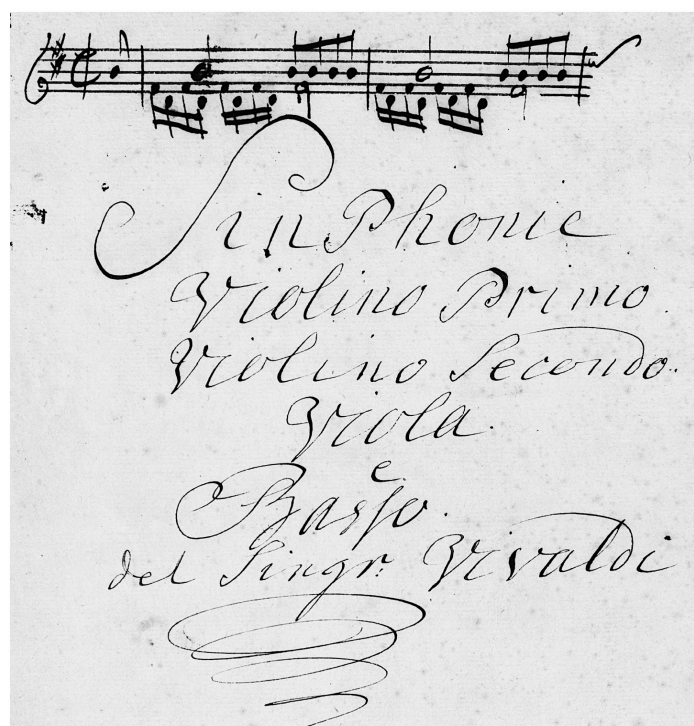 SinPhonie
Violino Primo.
Violino Secondo.
Viola
e
Basso.
del Singr. Vivaldi